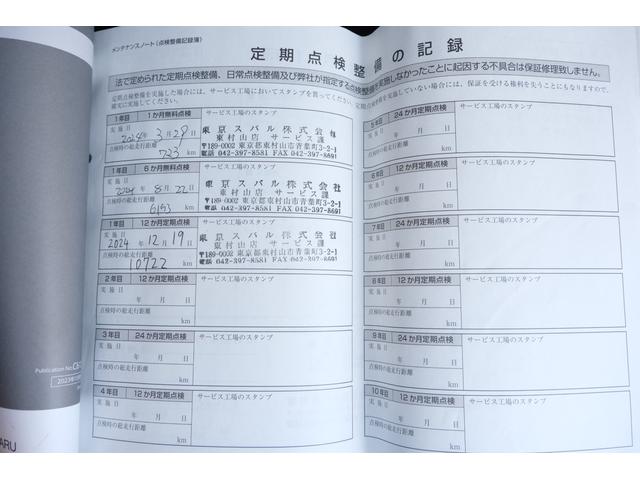 メンテナンスノート(点検整備記録簿)
定期点検整備の記録
法で定められた定期点検整備、日常点検整備及び弊社が指定する点検整備を実施しなかったことに起因する不具合は保証修理致しません。
定期点検整備を実施した場合には、サービス工場においてスタンプを貰ってください。定期点検整備を実施していない場合、保証を受ける権利を失うことにもなりますので、
確実に実施してください。
1年目 1か月無料点検 サービス工場のスタンプ
実施日
2024年 3月28日
点検時の総走行距離
723 km
東京スバル株式会社
東村山店 サービス課
〒189-0002 東京都東村山市青葉町3-2-1
電話 042-397-8581 FAX 042-397-8691
1年目 6か月無料点検 サービス工場のスタンプ
実施日
2024年 8月22日
点検時の総走行距離
6153 km
東京スバル株式会社
東村山店 サービス課
〒189-0002 東京都東村山市青葉町3-2-1
電話 042-397-8581 FAX 042-397-8691
1年目 12か月定期点検 サービス工場のスタンプ
実施日
2024年 12月19日
点検時の総走行距離
10722 km
東京スバル株式会社
東村山店 サービス課
〒189-0002 東京都東村山市青葉町3-2-1
電話 042-397-8581 FAX 042-397-8691
2年目 12か月定期点検 サービス工場のスタンプ
実施日
年 月 日
点検時の総走行距離
km
3年目 24か月定期点検 サービス工場のスタンプ
実施日
年 月 日
点検時の総走行距離
km
4年目 12か月定期点検 サービス工場のスタンプ
実施日
年 月 日
点検時の総走行距離
km
5年目 24か月定期点検 サービス工場のスタンプ
実施日
年 月 日
点検時の総走行距離
km
6年目 12か月定期点検 サービス工場のスタンプ
実施日
年 月 日
点検時の総走行距離
km
7年目 24か月定期点検 サービス工場のスタンプ
実施日
年 月 日
点検時の総走行距離
km
8年目 12か月定期点検 サービス工場のスタンプ
実施日
年 月 日
点検時の総走行距離
km
9年目 24か月定期点検 サービス工場のスタンプ
実施日
年 月 日
点検時の総走行距離
km
10年目 12か月定期点検 サービス工場のスタンプ
実施日
年 月 日
点検時の総走行距離
km
Publication No.
2023年
ARU